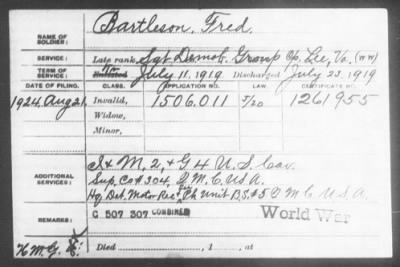 Bartleson, Fred.
NAME OF SOLDIER:
SERVICE: Late rank, Sgt Demob. Group Co. Lee, Va. (WW)
TERM OF SERVICE: Enlisted July 11, 1919 Discharged July 23, 1919
DATE OF FILING. CLASS. APPLICATION NO. LAW. CERTIFICATE NO.
1924 Aug 21, Invalid, 1506.011 1261955
Widow,
Minor,
ADDITIONAL SERVICES: I & M. 2, & G 4 U.S. Cav.
Sup. Co #304, Q.M.C. U.S.A.
Hq Det. Motor Rec Ch Unit B.S. #5 Q M C U.S.A.
REMARKS: C 507 307 COMBINED World War
Died , 1 , at